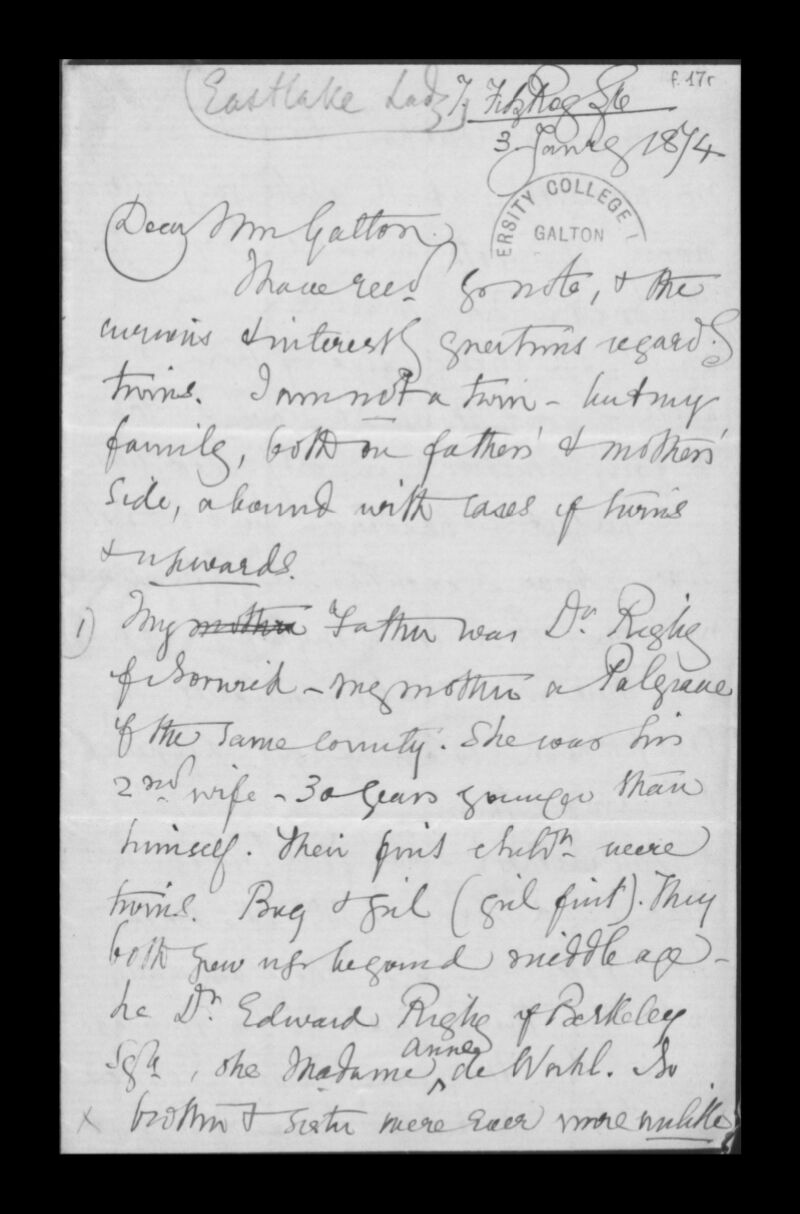 Eastlake Lady
f. 17r
7 FitzRoy Sqre
3 Janry 1874
UNIVERSITY COLLEGE
GALTON
Dear Mr Galton
I have recd yr note, & the
curious & interestg questions regardg
twins. I am not a twin - but my
family, both on fathers' & mothers'
side, abound with cases of twins
& upwards.
1) My mother Father was Dr. Rigby
of Norwich - my mother a Palgrave
of the same county. She was his
2nd wife - 30 years younger than
himself. Their first childn were
twins. Boy & girl (girl first). They
both grew up beyond middle age -
he Dr. Edward Rigby of Berkeley
Sqre, she Madame Anne de Wahl. No
x brother & sister were ever more unlike